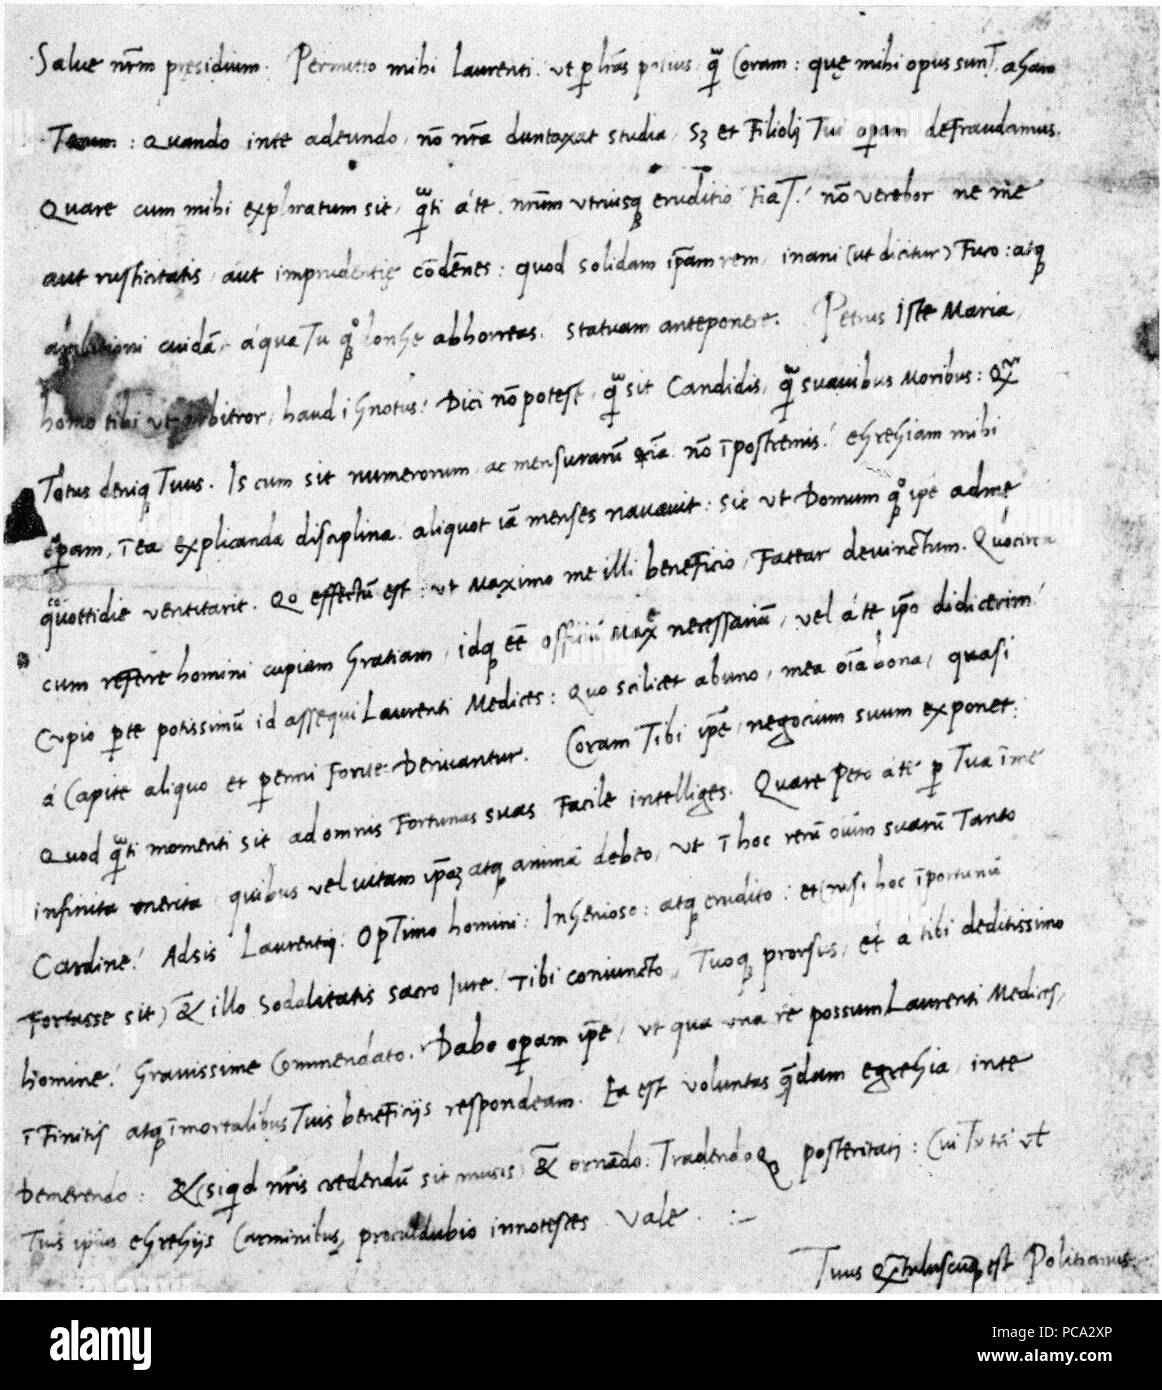 Salue nr̄m pręsidium. Permitto mihi Laurenti. ut p lr̄as potius, q̄ Coram: quę mihi opus sunt,
: Quando inte adeundo, nō nr̄a duntaxat studia, sꝫ et Filiolj Tui opam defraudamus.
Quare cum mihi exploratum sit, q̄ti áte. nr̄um utriusq eruditió fiat! nō verebor ne me
aut rusticitatis, aut imprudentię cōdēnes: quod solidam ip̄am rem, inani (ut dicitur) Fuco: atq
ambitioni cuidā, áqua Tu q° longe abhorreas! statuam anteponere. Petrus Iste Maria,
homo tibi ut arbitror, haud ignotus! Dici nō potest, q̄ sit Candidis, q̄ suauibus Moribus:
Totus deniq Tuus. Is cum sit numerorum, ac mensurarū nō ī postremis! egregiam mihi
opam, ī ea explicanda disciplina. aliquot iā menses nauauit: sic ut Domum q° ip̄e adme
quottidie ventitarit. Qo effectū est: ut Maximo me illi beneficio, Fatear deuinctum. Quócirca
cum referre homini cupiam Gratiam, idq eē officiū Max̄e necessariū, vel áte ip̄o didicerim!
Cupio pte potissimū id assequi Laurenti Medices: Quo scilicet abuno, mea oīa bona, quasi
á Capite aliquo et penni Forte Deriuantur. Coram Tibi ip̄e, negocium suum exponet:
Quod q̄ti momenti sit ad omnis Fortunas suas Facile intelliges. Quare Peto áte p Tua ī me
infinita merita, quibus vel uitam ip̄aꝫ atq animā debeo, ut ī hoc rerū oīum suarū Tanto
Cardine! Adsis Laurentj: Optimo homini: Ingenioso: atq erudito: et (nisi hoc īportunū
Fortasse sit) & illo Sodalitatis sacro Iure! Tibi coniuncto, Tuoq prorsus, et á tibi deditissimo
homine! Grauissime Commendato. Dabo opam ip̄e, ut qua una re possum Laurenti Medices,
ī Finitis atq īmortalibus Tuis beneficijs respondeam. Ea est voluntas q̄dam egregia, inte
Demerendo: & (siqd nr̄is credendū sit musis) & ornādo: Tradendoq posteritati: Cui Tu tn̄ ul
Tuis ipsius egregijs Carminibus, proculdubio innotesces. Vale. :~
Tuus est Politianus.
alamy
Image ID: PCA2XP
www.alamy.com